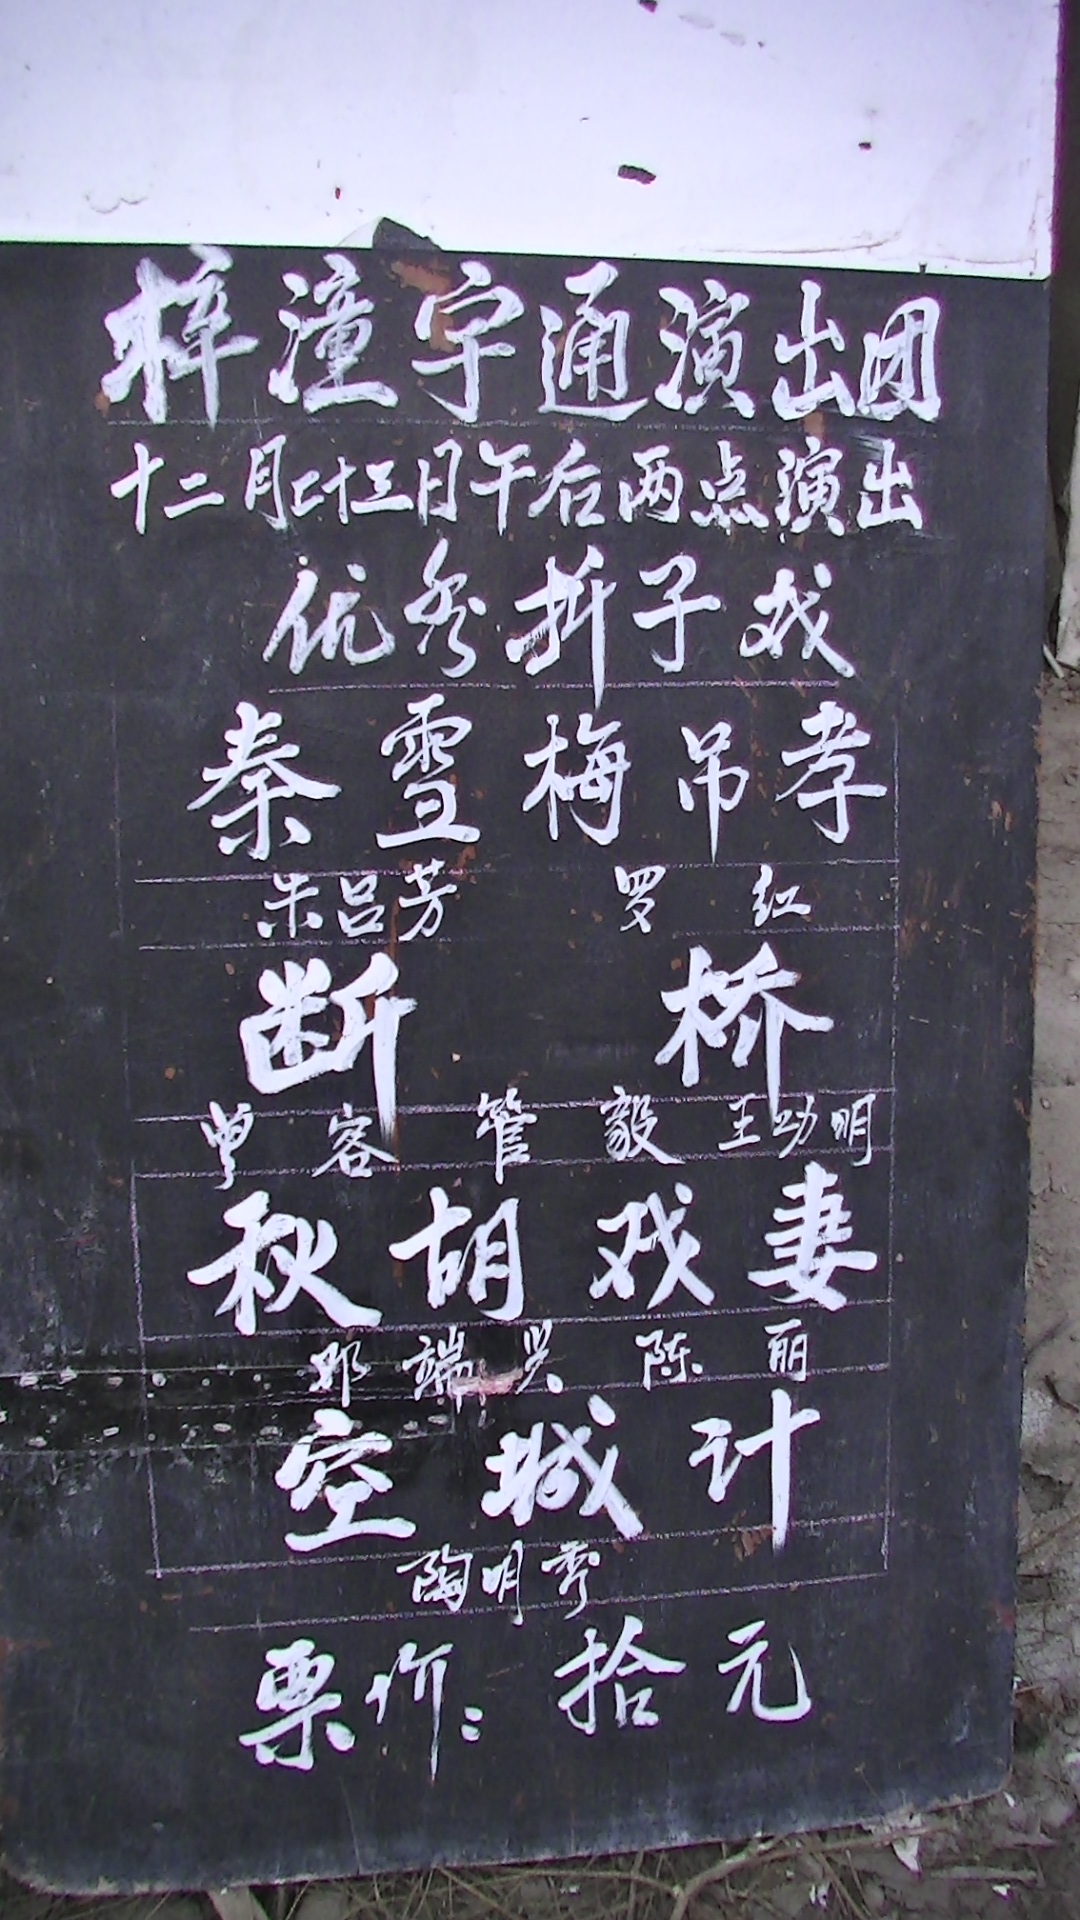 梓潼宇通演出团
十二月廿三日午后两点演出
优秀折子戏
秦雪梅吊孝
朱吕芳 罗红
断桥
曾容 管毅 王功明
秋胡戏妻
邓端兴 陈丽
空城计
陶明秀
票价：拾元